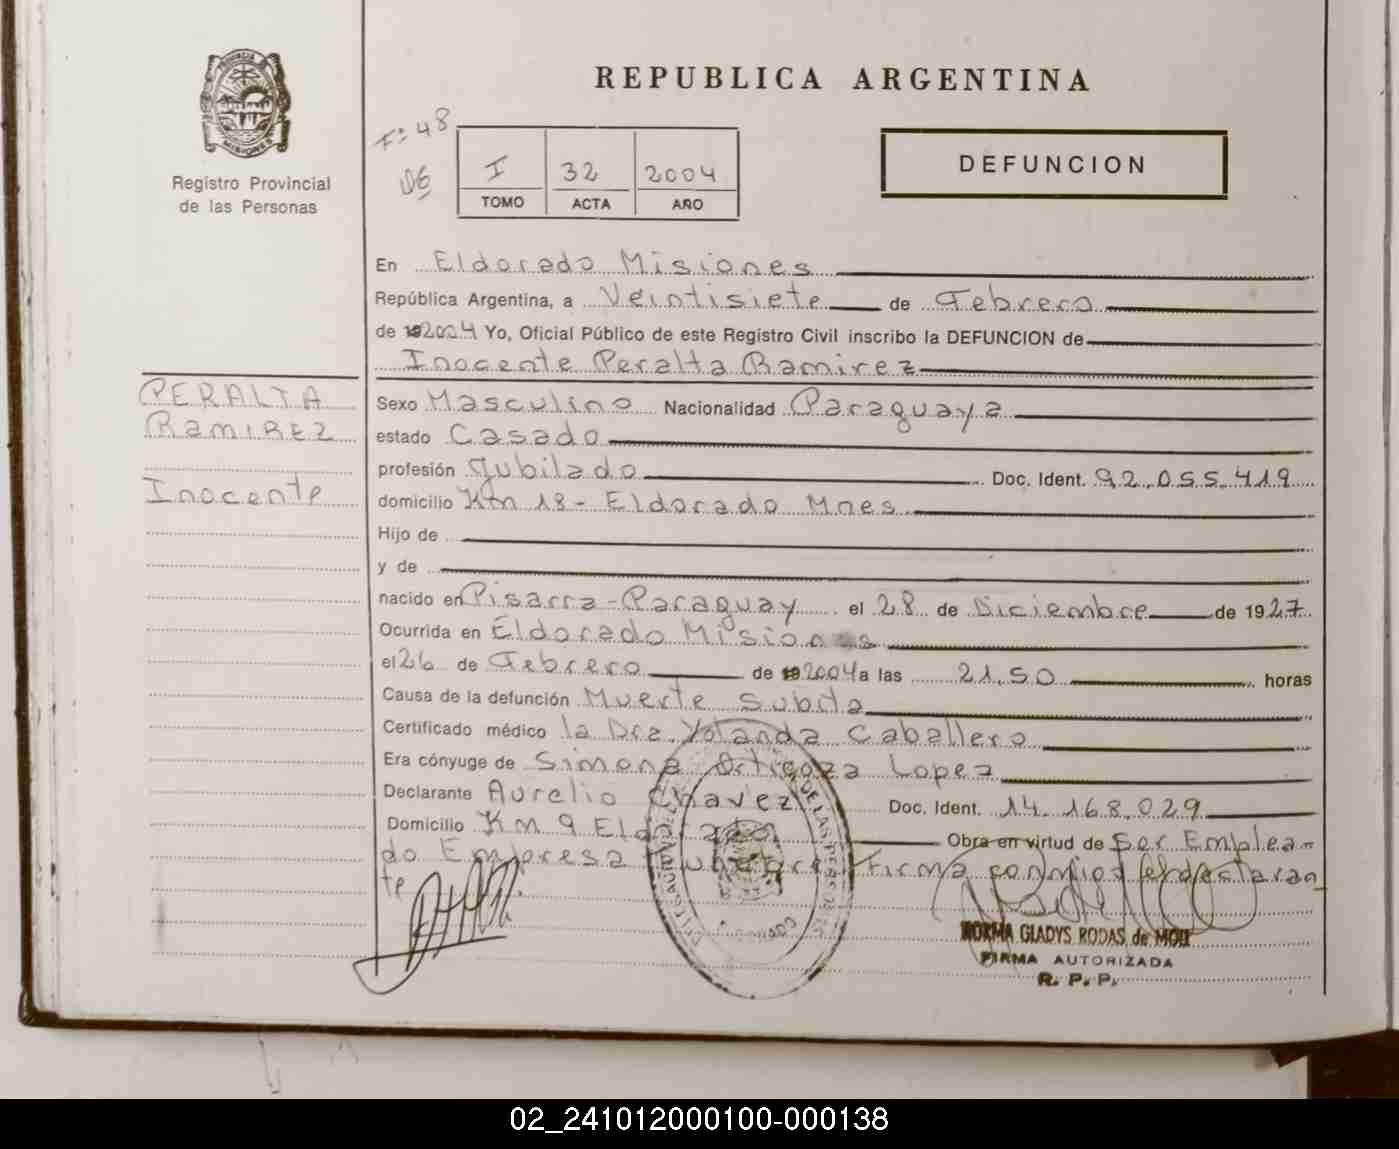 PROVINCIA DE
MISIONES
Registro Provincial
de las Personas
REPUBLICA ARGENTINA
Fº 48
DEFUNCION
I 32 2004
TOMO ACTA AÑO
En Eldorado Misiones
República Argentina, a Veintisiete de Febrero
de 192004 Yo, Oficial Público de este Registro Civil inscribo la DEFUNCION de
Inocente Peralta Ramirez
PERALTA
RamIREZ
Inocente
Sexo Masculino Nacionalidad Paraguaya
estado Casado
profesión Jubilado Doc. Ident. 92.055.419
domicilio Km 18 - Eldorado Mnes
Hijo de
y de
nacido en Pisarra - Paraguay el 28 de Diciembre de 1927
Ocurrida en Eldorado Misiones
el 26 de Febrero de 192004 a las 21.50 horas
Causa de la defunción Muerte Subita
Certificado médico la Dra. Yolanda Caballero
Era cónyuge de Simona Ortigoza Lopez
Declarante Aurelio Chavez Doc. Ident. 14.168.029
Domicilio Km 9 Eldorado Obra en virtud de Ser Emplea-
do Empresa Funebre Firma conmigo el declaran
te
DE LAS PERSONAS
NORMA GLADYS RODAS de MOLL
FIRMA AUTORIZADA
R. P. P.
02_241012000100-000138